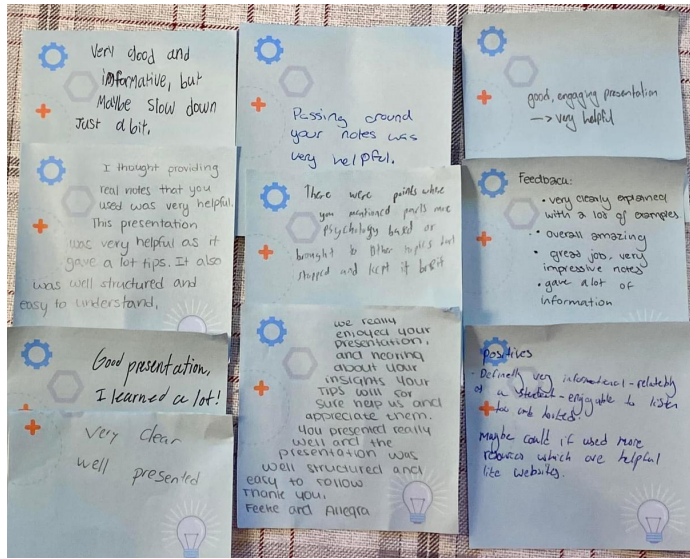 Very Good and
informative, but
Maybe slow down
Just a bit.
I thought providing
real notes that you
used was very helpful.
This presentation
was very helpful as it
gave a lot tips. It also
was well structured and
easy to understand.
Good presentation,
I learned a lot!
Very clear
well presented
Passing around
your notes was
very helpful.
There were points where
you mentioned parts more
Psychology based or
brought to Other topics
stopped and kept it brief
we really
enjoyed your
presentation,
and hearing
about your
insights your
Tips will for
sure help us and
appreciate them.
You presented really
well and the
presentation was
well structured and
easy to follow
Thank you,
Feeke and Allegra
good, engaging presentation
→ very helpful
Feedback:
• very clearly explained
with a lot of examples
• overall amazing
• great job, very
impressive notes
• gave a lot of
information
positives
- Definetly very informational - relatebly
a student - engajable to listen
too
Maybe could if used more
resources which are helpful
like websites.